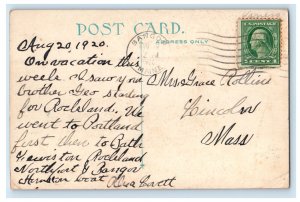 POST CARD.
ADDRESS ONLY
Aug 20, 1920.
On vacation this
week.
brother Geo starting
for Rockland. We
went to Portland
first then to Bath
Lewiston Rockland
Northport & Bangor
boat
Mrs Grace Rollins
Lincoln
Mass